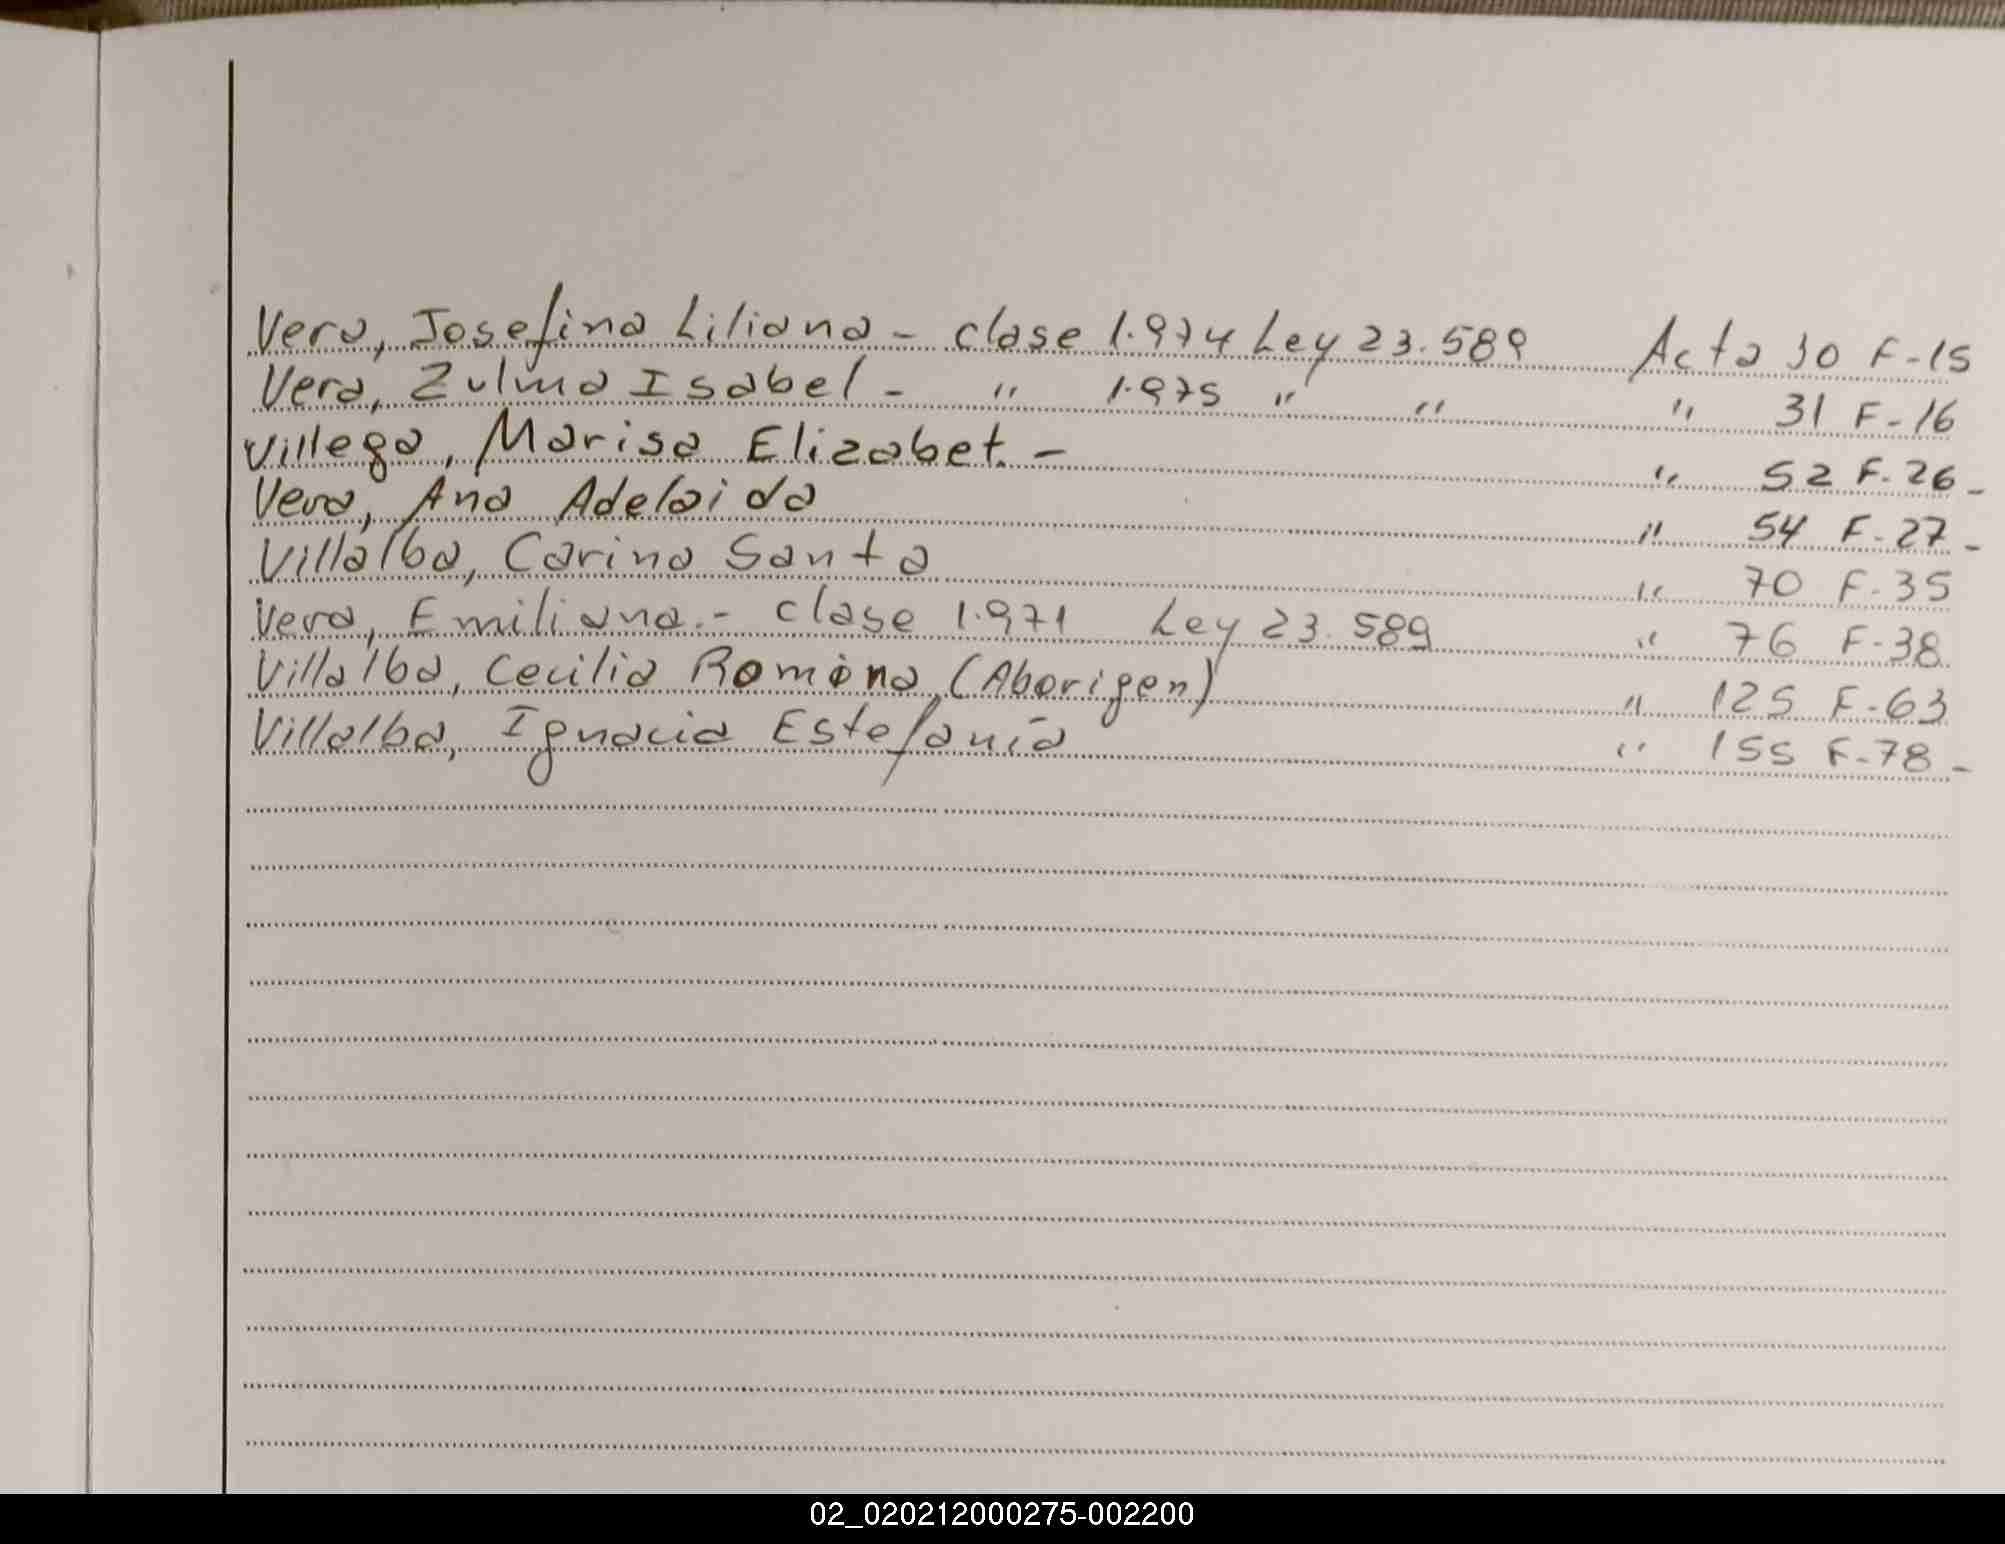 Vera, Josefina Liliana - clase 1.974 Ley 23.589 Acta 30 F-15
Vera, Zulma Isabel - " 1.975 " " " 31 F-16
Villega, Marisa Elizabet. - " 52 F-26-
Vera, Ana Adelaida " 54 F-27-
Villalba, Carina Santa " 70 F-35
Vera, Emiliana.- clase 1.971 Ley 23.589 " 76 F-38
Villalba, Cecilia Romina (Aborigen) " 125 F-63
Villalba, Ignacia Estefanía " 155 F-78-
02_020212000275-002200